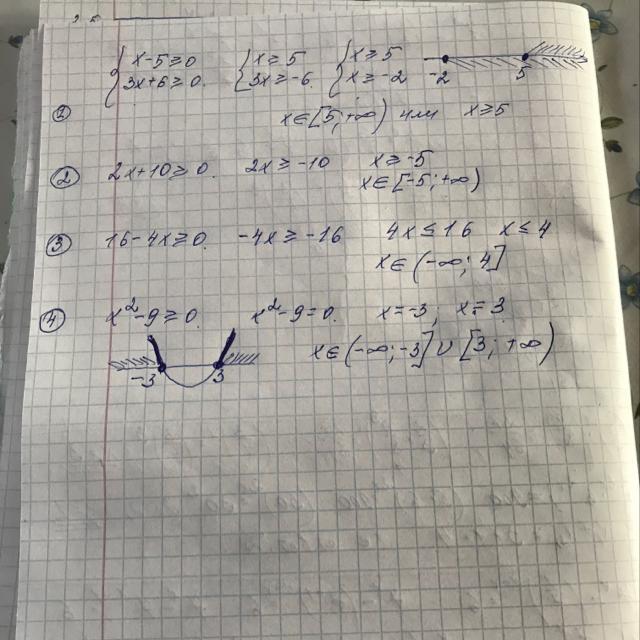 { x-5≥0 { x≥5 { x≥5
{ 3x+6≥0. { 3x≥-6 { x≥-2
-2 5
① x∈[5;+∞) или x≥5
② 2x+10≥0. 2x≥-10 x≥-5
x∈[-5;+∞)
③ 16-4x≥0. -4x≥-16 4x≤16 x≤4
x∈(-∞;4]
④ x²-9≥0. x²-9=0. x=-3; x=3
x∈(-∞;-3]∪[3;+∞)
-3 3